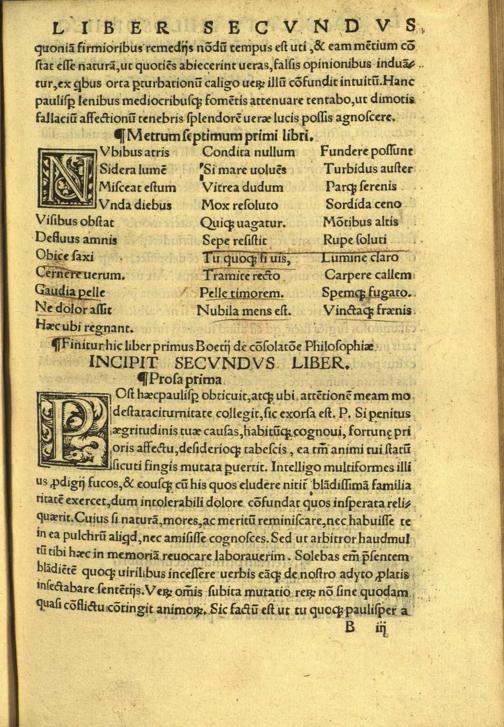 LIBER SECVNDVS
quoniā firmioribus remedijs nōdū tempus est uti, & eam mētium cō
stat esse naturā, ut quotiēs abiecerint ueras, falsis opinionibus induā⸗
tur, ex qbus orta ꝑturbationū caligo ueꝝ illū cōfundit intuitū. Hanc
paulisꝑ lenibus mediocribusqꝫ fomētis attenuare tentabo, ut dimotis
fallaciū affectionū tenebris splendorē ueræ lucis possis agnoscere.
¶Metrum septimum primi libri.
NVbibus atris Condita nullum Fundere possunt
Sidera lumē Si mare uoluēs Turbidus auster
Misceat estum Vitrea dudum Parqꝫ serenis
Vnda diebus Mox resoluto Sordida ceno
Visibus obstat Quiqꝫ uagatur. Mōtibus altis
Defluus amnis Sepe resistit Rupe soluti
Obice saxi Tu quoqꝫ si uis, Lumine claro
Cernere uerum. Tramite recto Carpere callem
Gaudia pelle Pelle timorem. Spemqꝫ fugato.
Ne dolor assit Nubila mens est. Vinctaqꝫ frænis
Hæc ubi regnant.
¶Finitur hic liber primus Boetij de cōsolatōe Philosophiæ
INCIPIT SECVNDVS LIBER.
¶Prosa prima
POst hæc paulisꝑ obticuit, atqꝫ ubi. attētionē meam mo
destataciturnitate collegit, sic exorsa est. P. Si penitus
ægritudinis tuæ causas, habitūqꝫ cognoui, fortunę pri
oris affectu, desiderioqꝫ tabescis, ea tm̄ animi tui statū
sicuti fingis mutata ꝑuertit. Intelligo multiformes illi
us ꝓdigij fucos, & eousqꝫ cū his quos eludere nitit̃ blādissimā familia
ritatē exercet, dum intolerabili dolore cōfundat quos insperata reli⸗
quærit. Cuius si naturā, mores, ac meritū reminiscare, nec habuisse te
in ea pulchrū aliqd, nec amisisse cognosces. Sed ut arbitror haud mul
tū tibi hæc in memoriā reuocare laborauerim. Solebas em̄ p̄sentem
blādiētē quoqꝫ uirilibus incessere uerbis eāqꝫ de nostro adyto ꝓlatis
insectabare sentētijs. Veꝝ om̄is subita mutatio reꝝ nō sine quodam
quasi cōflictu cōtingit animoꝝ. Sic factū est ut tu quoqꝫ paulisper a
B iij